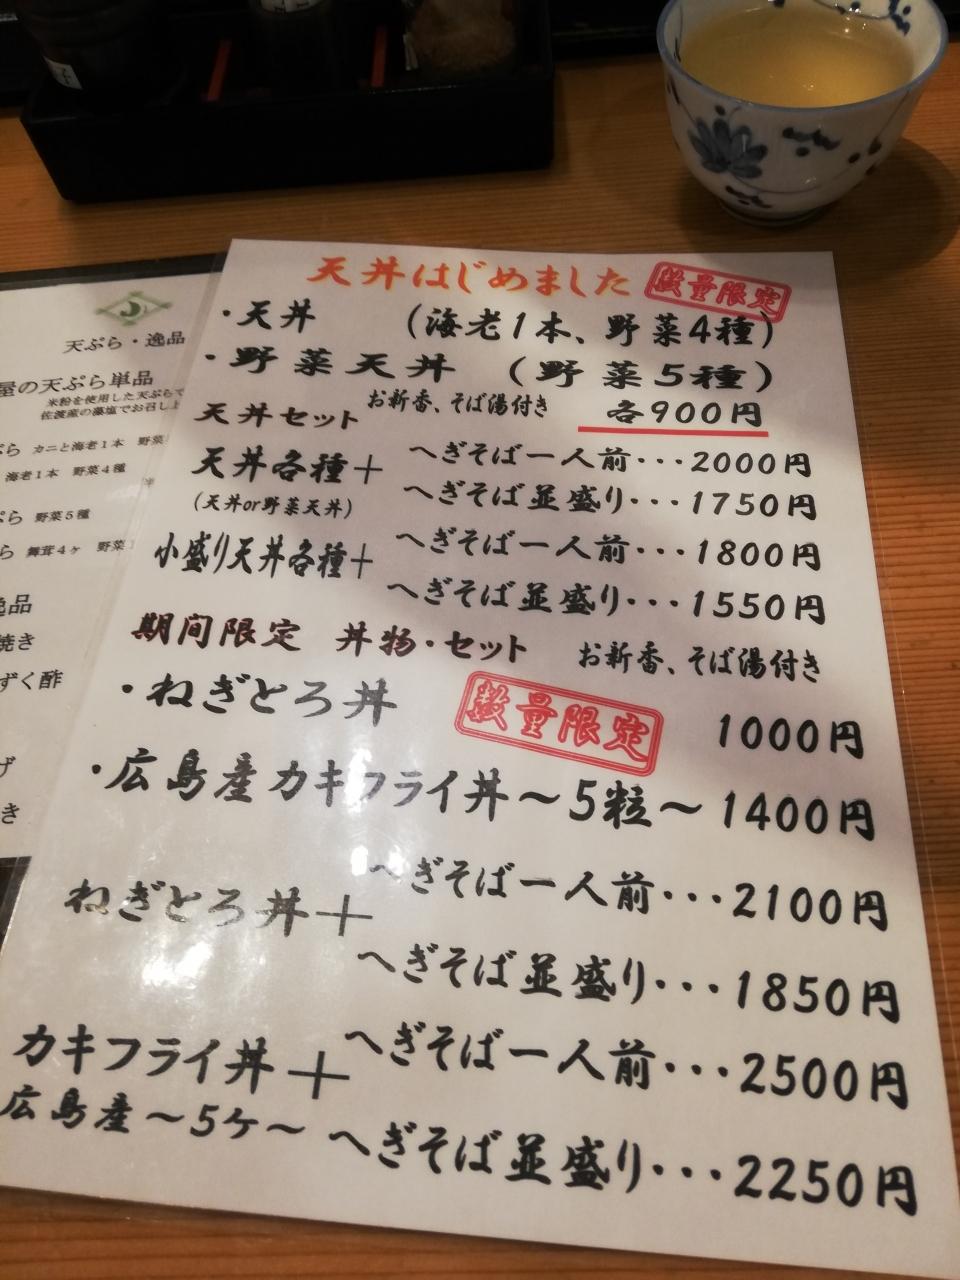 天丼はじめました 数量限定
・天丼 (海老1本、野菜4種)
・野菜天丼 (野菜5種)
天丼セット お新香、そば湯付き 各900円
天丼各種+ へぎそば一人前・・・2000円
(天丼or野菜天丼) へぎそば並盛り・・・1750円
小盛り天丼各種+ へぎそば一人前・・・1800円
へぎそば並盛り・・・1550円
期間限定 丼物・セット お新香、そば湯付き
・ねぎとろ丼 数量限定 1000円
・広島産カキフライ丼~5粒~ 1400円
ねぎとろ丼+ へぎそば一人前・・・2100円
へぎそば並盛り・・・1850円
カキフライ丼+ へぎそば一人前・・・2500円
広島産~5ケ~ へぎそば並盛り・・・2250円
天ぷら・逸品
屋の天ぷら単品
米粉を使用した天ぷらで
佐渡産の藻塩でお召し上
ぷら カニと海老1本 野菜
海老1本 野菜4種
ぷら 野菜5種
ら 舞茸4ヶ 野菜
逸品
焼き
ずく酢
げ
き